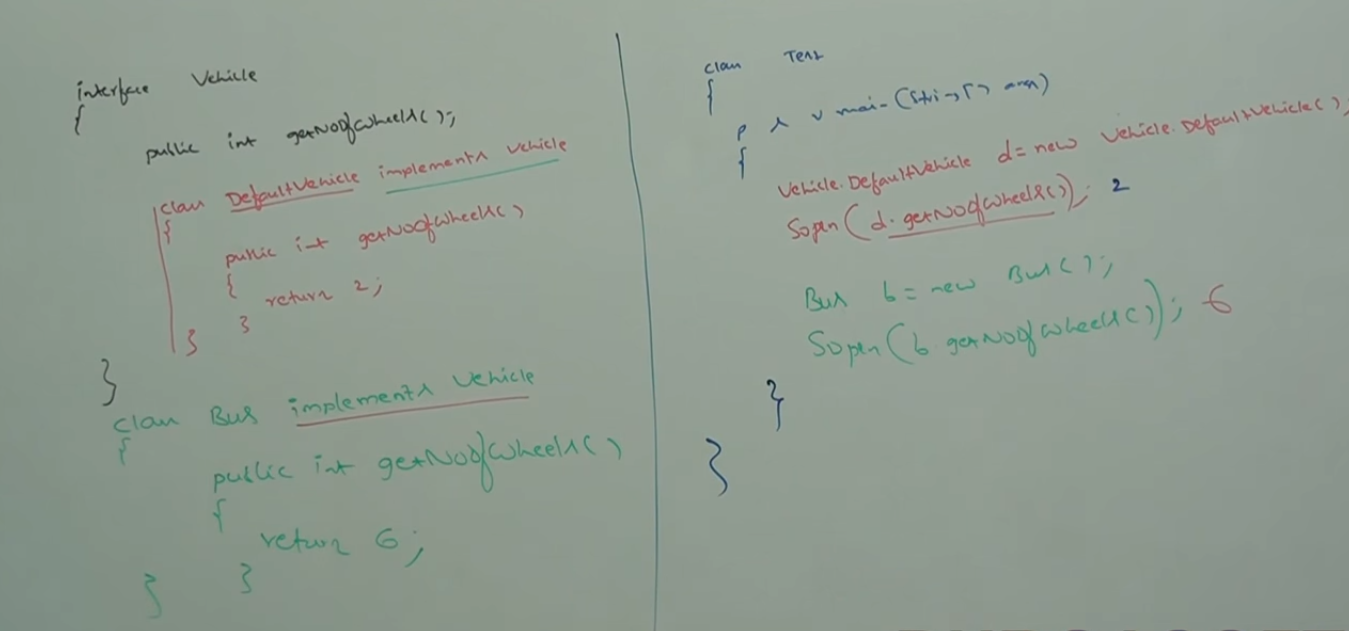 interface Vehicle
{
public int getNoOfWheels();
class DefaultVehicle implements Vehicle
{
public int getNoOfWheels()
{
return 2;
}
}
}
class Bus implements Vehicle
{
public int getNoOfWheels()
{
return 6;
}
}
class Test
{
p s v main(String[] args)
{
Vehicle.DefaultVehicle d = new Vehicle.DefaultVehicle();
Sopln(d.getNoOfWheels()); 2
Bus b = new Bus();
Sopln(b.getNoOfWheels()); 6
}
}